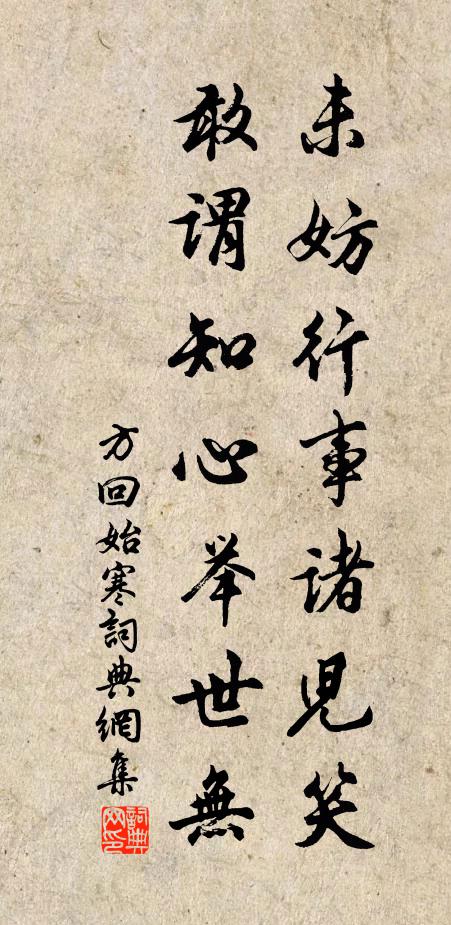 未妨行事诸儿笑
敢谓知心举世無
方回始寒詞典網集
詞典
网印